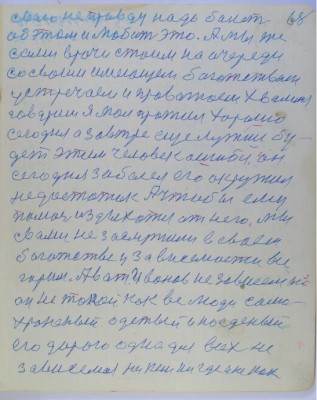 свого не правду надо бает 68
об том и любит это. А мы же
сами врачи стоим на очереди
со своим имеющем богатством
устречаем и провожаем Хвалимся
говорим я мол прожил хорошо
сегодня а завтре еще лучши бу-
дет этим человек ошибй. он
сегодня заболел его окружил
недостоток А чтобы ему
помоч издихоти от него. мы
с вами не заслужили в своем
богатстве и зависемости вы
горки. А вот Иванов не зависем
он не токой как все люди само-
хранный одетый и поеденый
его дорого одна для всех не
зависемоя ни ким ни где а не как